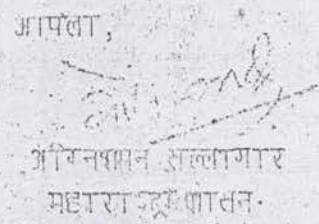 आपला,
अग्निशमन सल्लागार
महाराष्ट्र शासन.